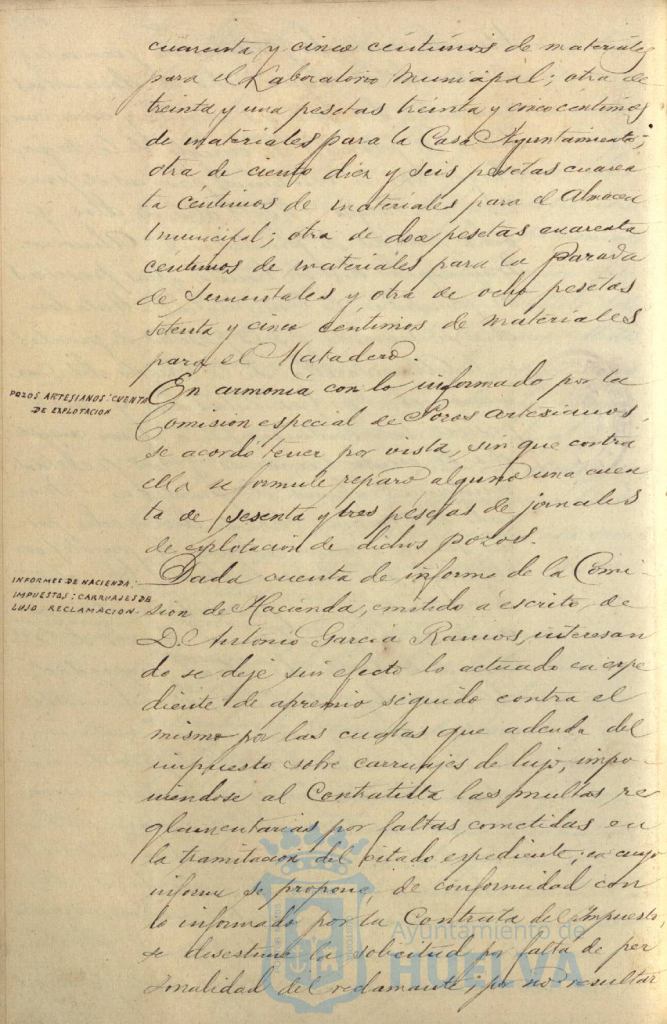 cuarenta y cinco céntimos de materiales
para el Laboratorio Municipal; otra de
treinta y una pesetas treinta y cinco céntimos
de materiales para la Casa Ayuntamiento;
otra de ciento diez y seis pesetas cuaren
ta céntimos de materiales para el Almacen
Municipal; otra de doce pesetas cuarenta
céntimos de materiales para la Parada
de Sementales y otra de ocho pesetas
setenta y cinco céntimos de materiales
para el Matadero.
POZOS ARTESIANOS: CUENTA
DE EXPLOTACION
En armonía con lo informado por la
Comision especial de Pozos artesianos,
se acordó tener por vista, sin que contra
ella se formule reparo alguno una cuen
ta de sesenta y tres pesetas de jornales
de explotación de dichos pozos.
INFORMES DE HACIENDA:
IMPUESTOS: CARRUAJES DE
LUJO RECLAMACION.
Dada cuenta de informe de la Comi-
sion de Hacienda, emitido á escrito de
D. Antonio Garcia Ramos, interesan
do se deje sin efecto lo actuado en expe
diente de apremio seguido contra el
mismo por las cuotas que adeuda del
impuesto sobre carruajes de lujo, impo-
niendose al Contratista las multas re
glamentarias por faltas cometidas en
la tramitación del citado expediente; en cuyo
informe se propone, de conformidad con
lo informado por la Contrata del Impuesto,
se desestime la solicitud por falta de per
sonalidad del reclamante, por no resultar
Ayuntamiento de
HUELVA